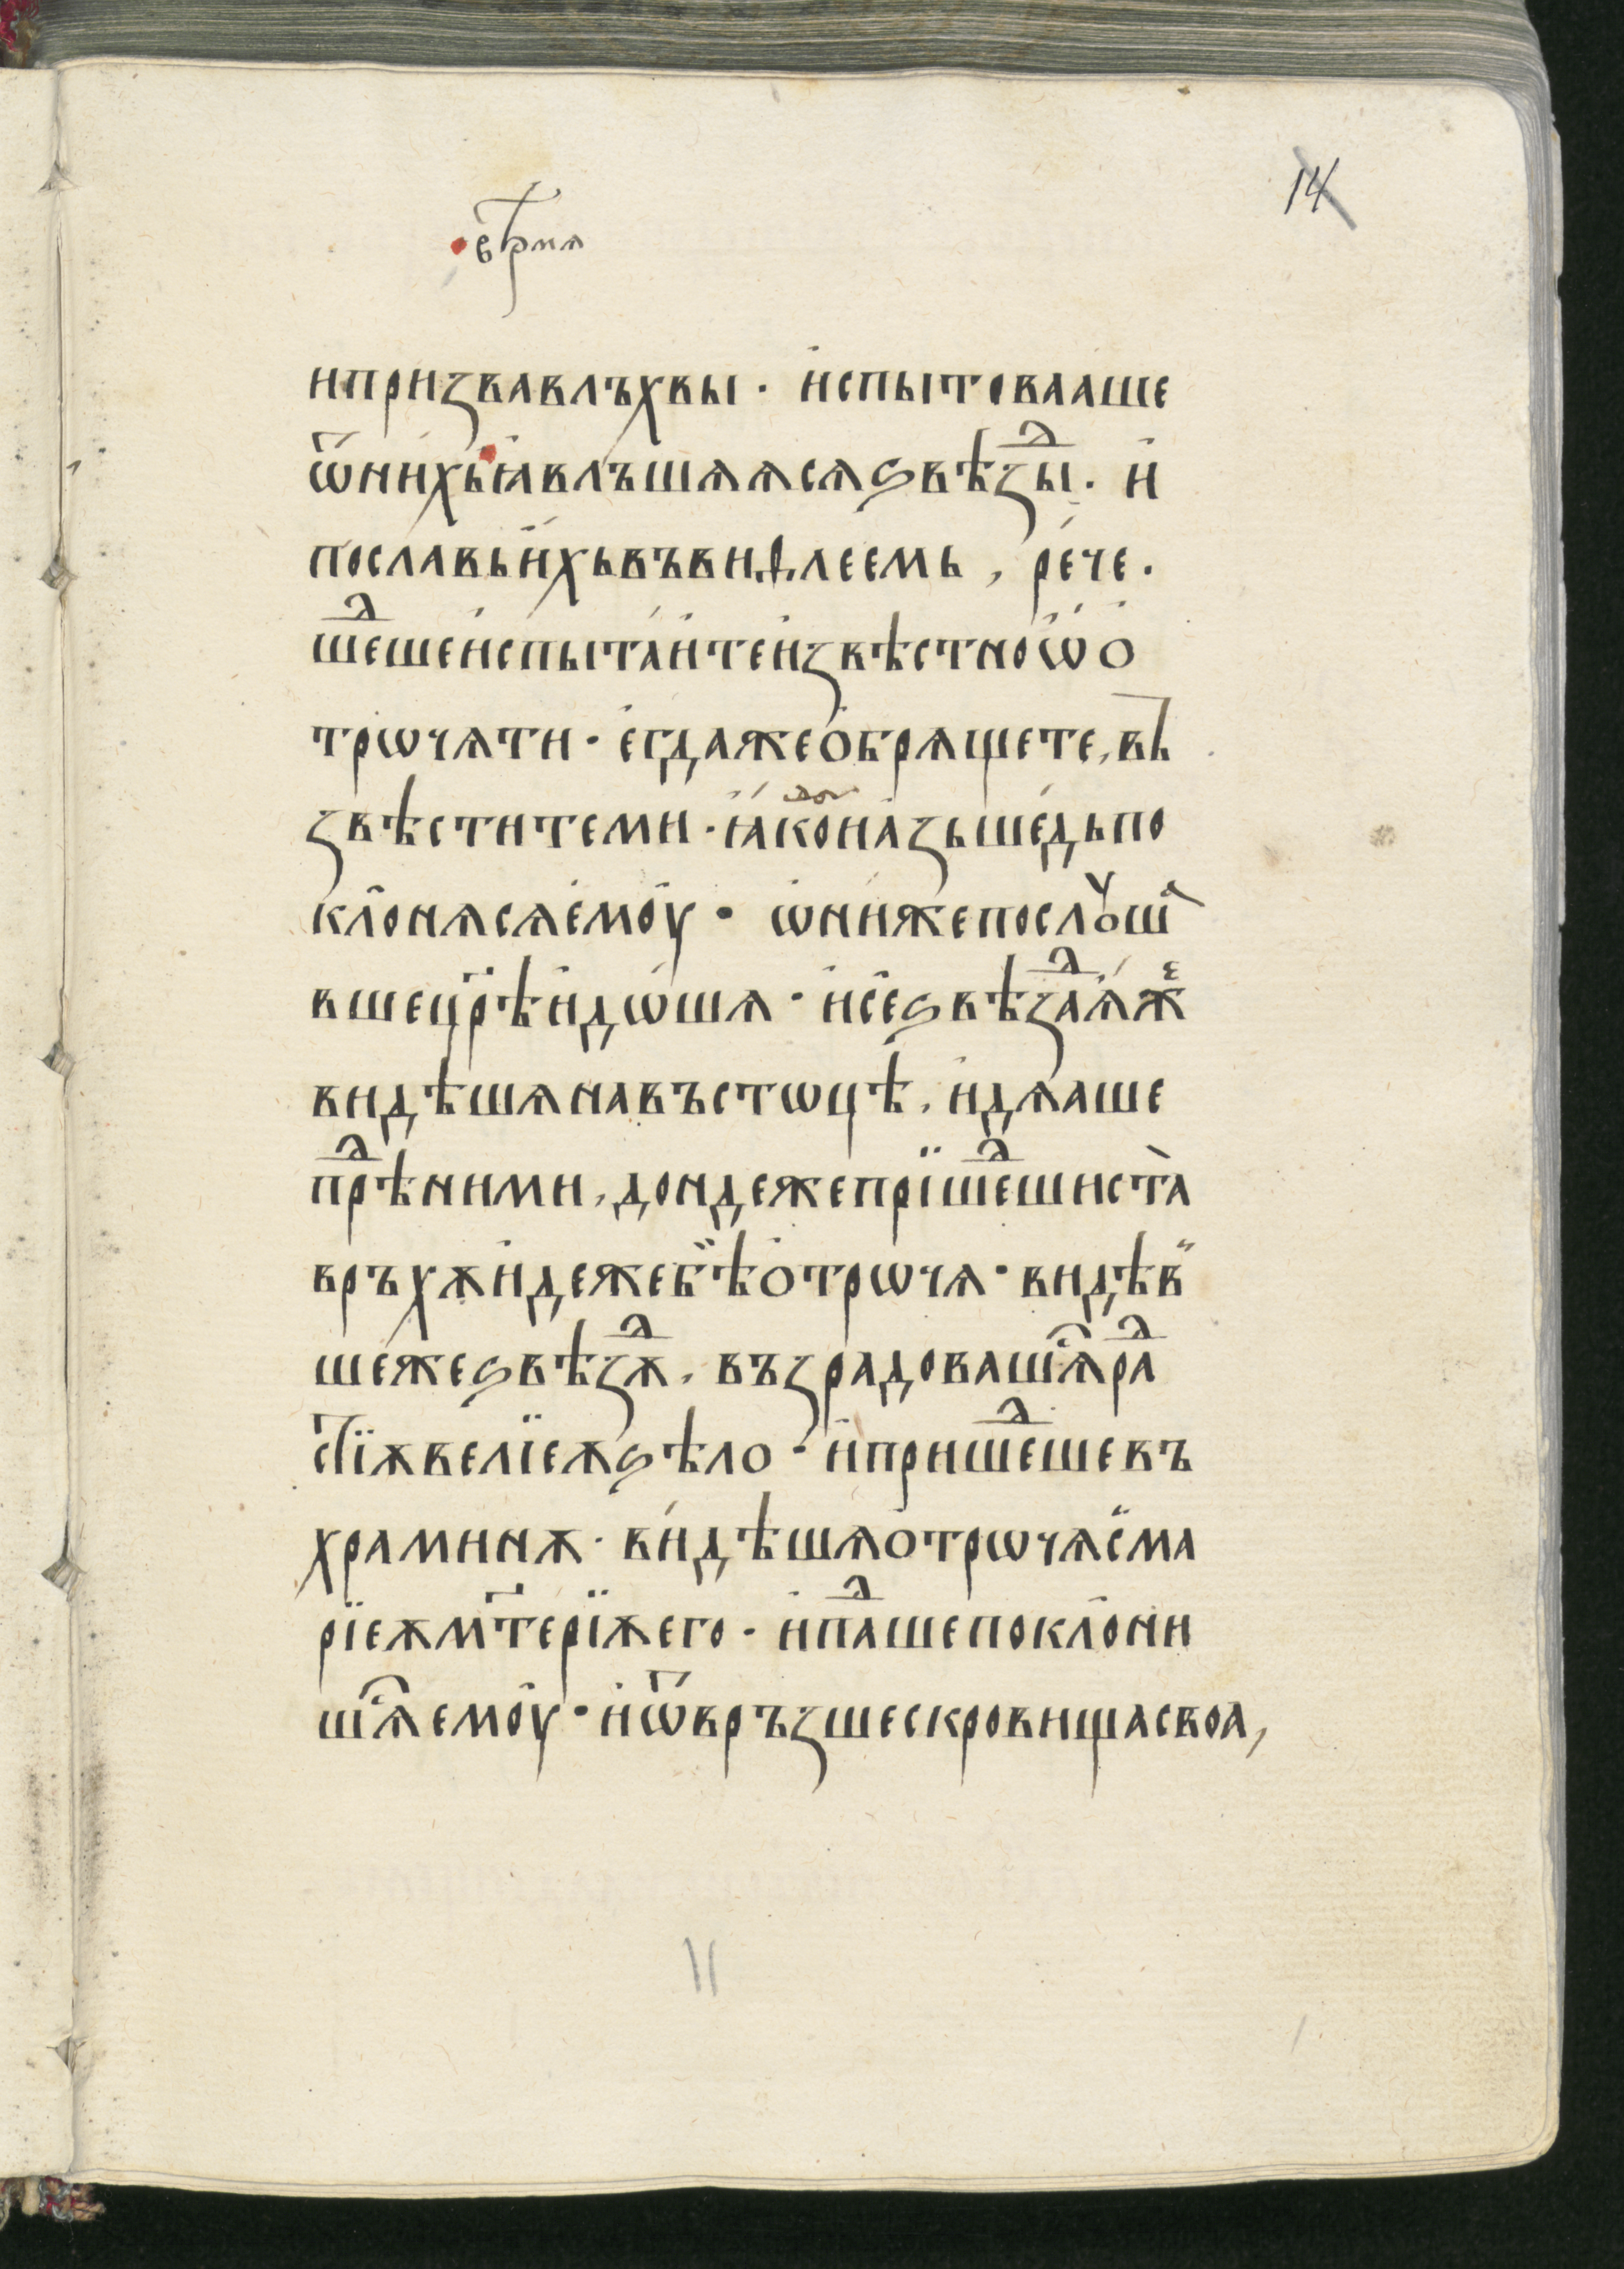 14
врⷨ҇ѧ
и призва влъхвы · и҆спытоваашє
ѿ ни́хь ꙗ҆влъшѧѧсѧ ѕвѣзⷣы · и҆
пославь и҆́хь въ виѳлеемь , ре́че ·
шеⷣше и҆спыта́и҆те и҆звѣстно ѽ о҆
трѡчѧти · є҆гда же ѻ҆брѧщете, въ
звѣстите ми · ꙗ҆́ко и҆ а҆зь ше́дь по
клоню сѧ є҆моу · ѡ҆ни́ же послꙋша
вше цр҃ѣ и҆дѡ́шѧ · и҆ се ѕвѣзⷣа ѧ҆́жⷷ
видѣшѧ на въстѡцѣ, и҆дѧаше
прѣⷣ ними, дондеже прїшеⷣши ста̀
връхѫ и҆деже бѣ̏ ѻ҆трѡчѧ · видѣв̏
ше́ же ѕвѣзⷣѫ, възрадовашѧⷭ҇ раⷣ
стїѫ велїеѫ ѕѣло · и҆ пришеⷣше въ
храминѫ · ви́дѣшѧ ѻ҆трѡчѧ с̏ ма
рїеѫ мт҃ерїѫ его · и҆ паⷣше поклони
шѧⷭ҇ емоу · и҆ ѿвръзше скровища своа,
11